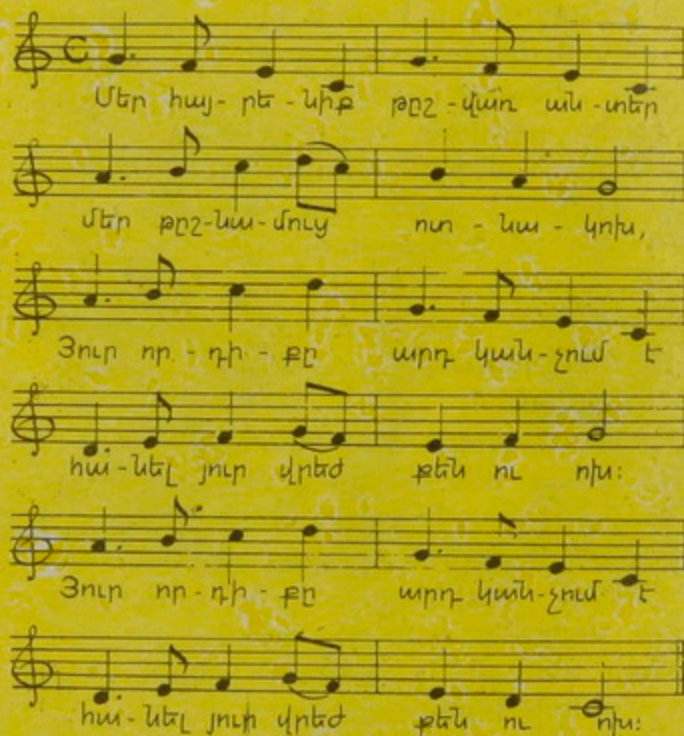 Մեր հայ - րե - նիք թըշ - վառ ան - տեր
մեր թըշ - նա - մուց ոտ - նա - կոխ,
Յուր որ - դի - քը արդ կան - չում է
հա - նել յուր վրեժ քեն ու ոխ:
Յուր որ - դի - քը արդ կան - չում է
հա - նել յուր վրեժ քեն ու ոխ: